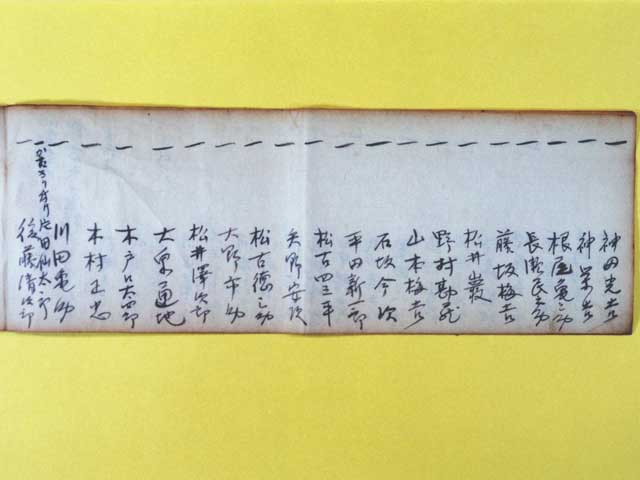 一 神田光吉
一 神栄吉
一 根尾亀之助
一 長瀬民之助
一 藤坂梅吉
一 松井巌
一 野村勘蔵
一 山本梅吉
一 石坂今次
一 平田新一郎
一 松古四三平
一 矢野安次
一 松古徳之助
一 大野市助
一 松井澤次郎
一 大栗通地
一 木戸口太四郎
一 木村正忠
一 川田亀助
一 片田仙太郎
一 後藤清次郎